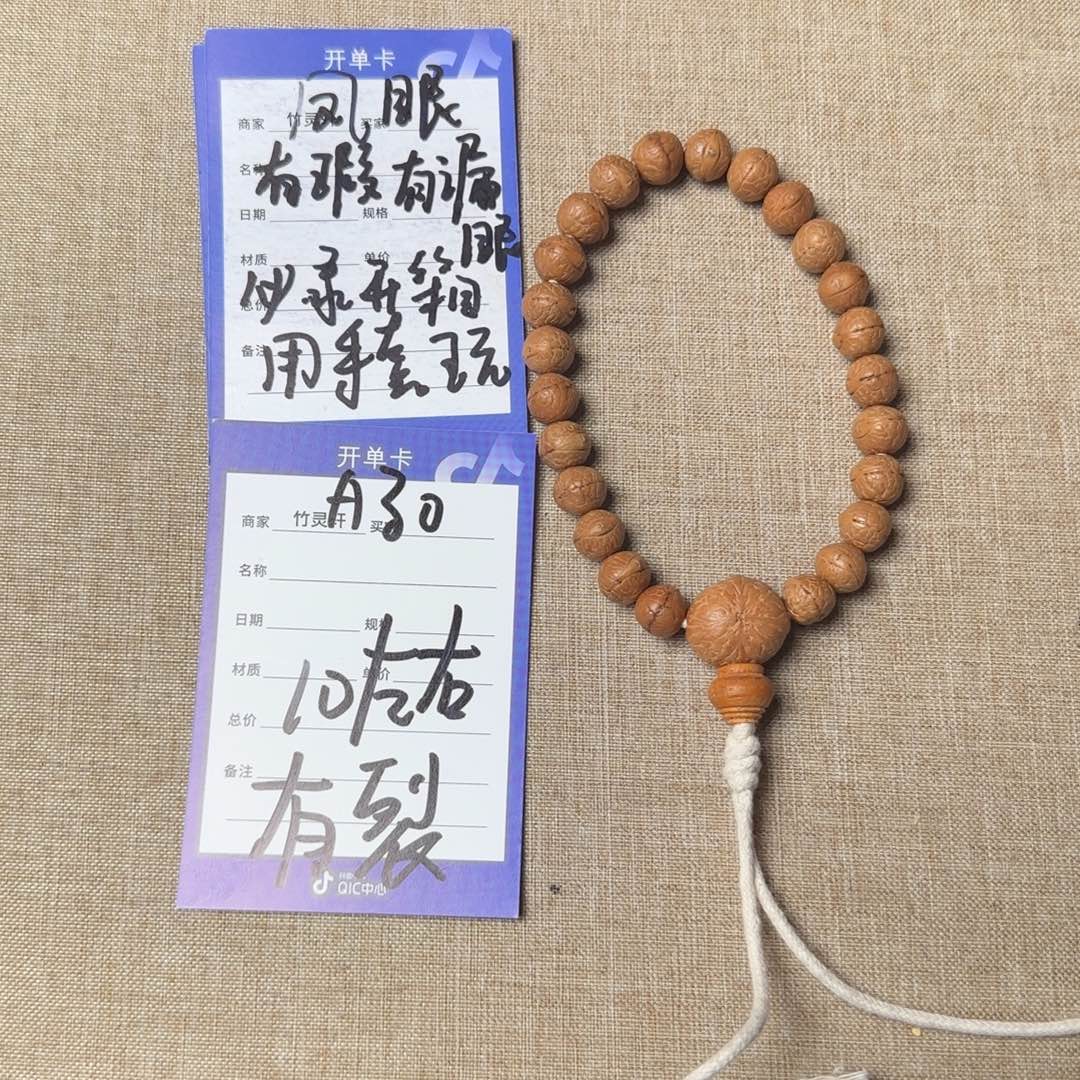 开单卡
凤眼
商家 竹灵 买家
名称
有瑕有漏
眼
日期 规格
材质 单价
必录开箱
总价
备注
用手套玩
开单卡
A30
商家 竹灵轩 买家
名称
日期 规格
10左右
材质 单价
总价
备注
有裂
QIC中心